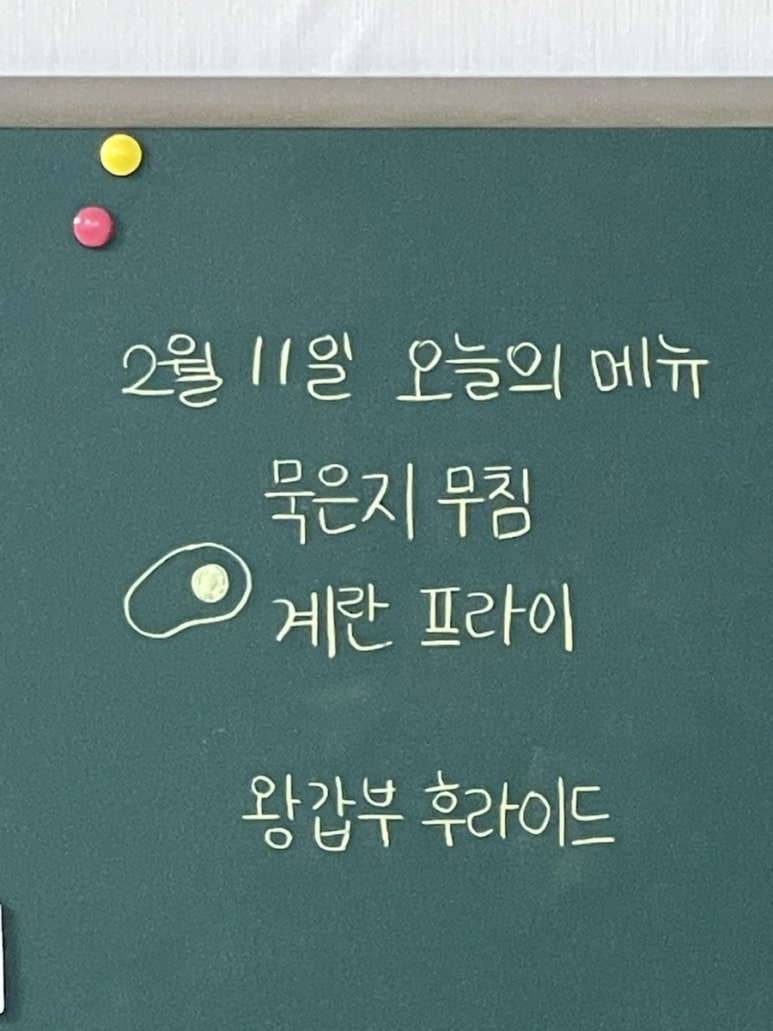 2월 11일 오늘의 메뉴
묵은지 무침
계란 프라이
왕갑부 후라이드